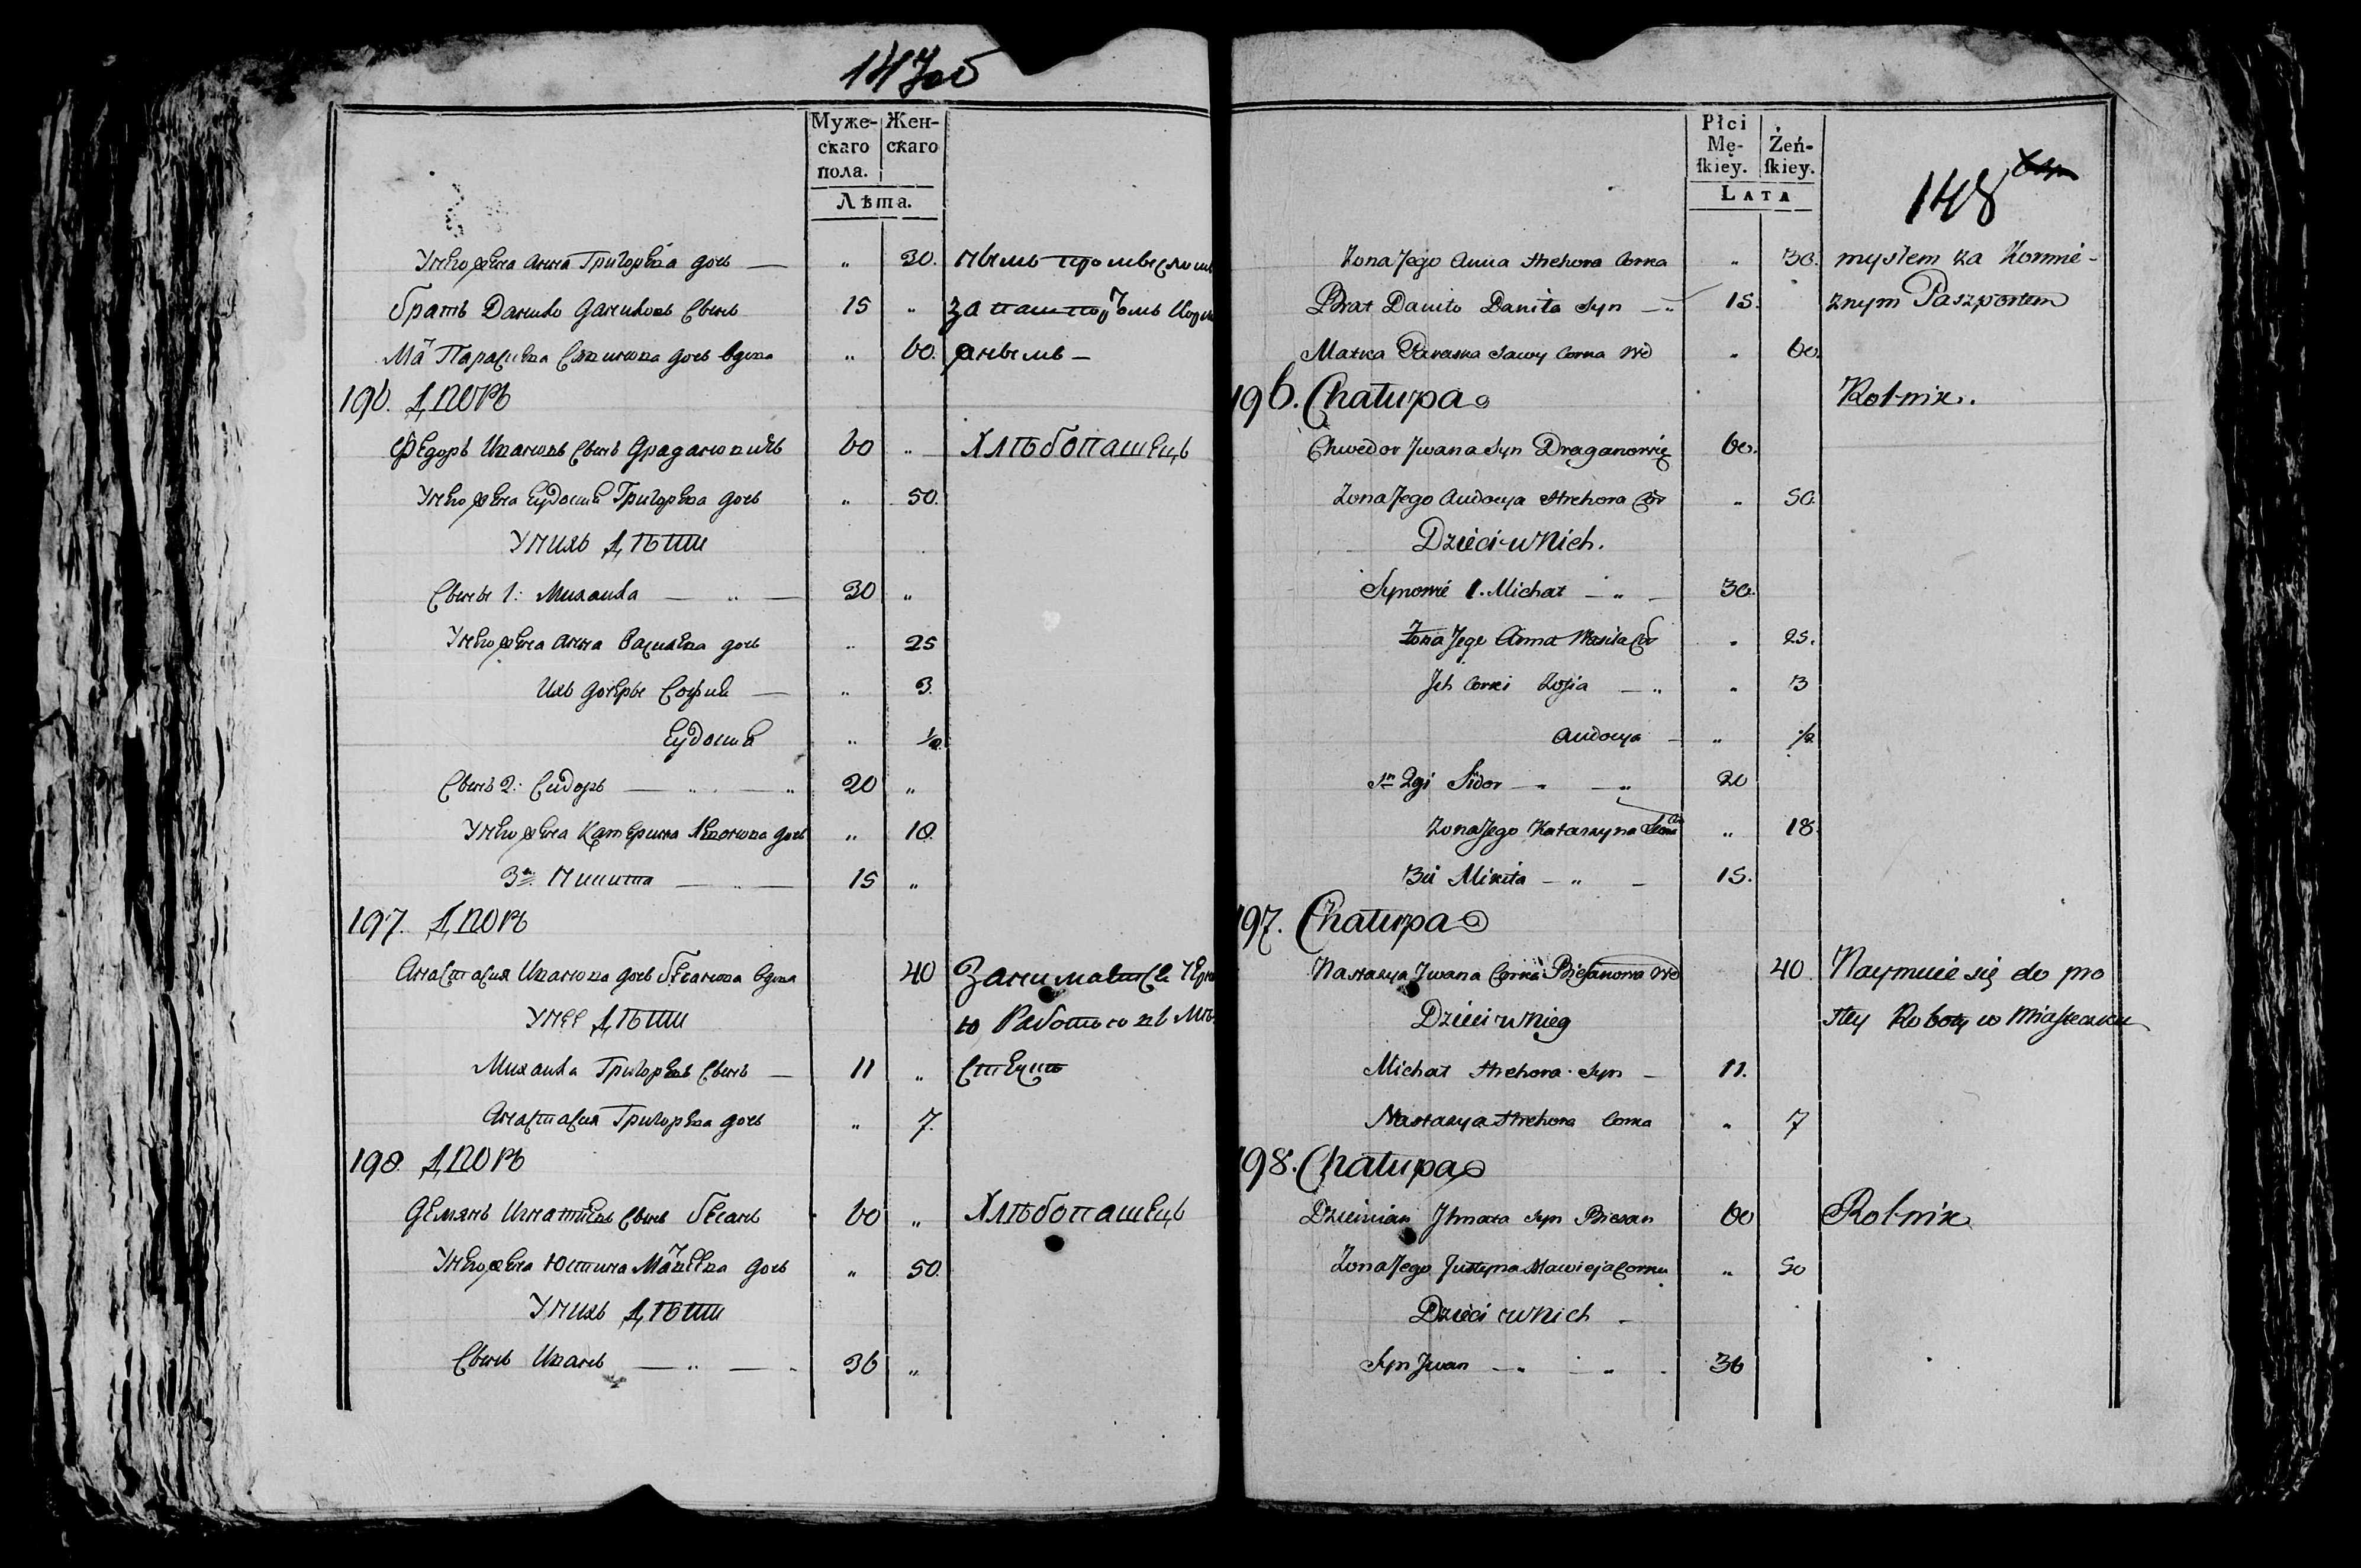 147об
Муже-
скаго
пола.
Жен-
скаго
Лѣта.
У него жена Анна Григорьева дочь — " 30.
братъ Данило Даниловъ сынъ 15 " за
Мать Парасковia дочь вдова " 60.
196. Дворъ
Федоръ Ивановъ сынъ Драгановичъ 60 " Хлѣбопашецъ
У него жена Евдокia Григорьева дочь " 50.
У нихъ дѣти
Сынъ 1: Михайла — " — 30 "
У него жена Анна Васильева дочь " 25
Ихъ дочери Софиia — " 3.
Евдокia " 1/2.
Сынъ 2: Сидоръ — " — " 20 "
У него жена Катерина дочь " 18
3й Никита — " — 15 "
197. Дворъ
Анастасия Иванова дочь Бесанова вдова 40 Занимается
У нее дѣти работою въ мѣ-
Михайла Григорьевъ сынъ — 11 " стечкѣ
Анастасия Григорьева дочь " 7.
198 Дворъ
Демянъ Игнатиевъ сынъ Бесанъ 60 " Хлѣбопашецъ
У него жена Юстина Матвеева дочь " 50.
У нихъ дѣти
Сынъ Иванъ — " — 36 "
Płci
Mę-
ſkiey.
Żeń-
ſkiey.
LATA
148
Zona Jego Anna Hrehora Corka " 30. mysłem za Kormie-
Brat Daniło Daniła Syn — " 15. znym Paszportem
Matka Paraska Sawy Corka Wd " 60.
196. Chałupa Rolnik.
Chwedor Jwana Syn Draganowicz 60.
Zona Jego Audocya Hrehora Cor " 50.
Dzieci w Nich.
Synowie 1. Michał — " — 30.
Zona Jego Anna Wasila Cor " 25.
Jch Corki Zofia — " " 3
Audocya — " 1/2
Sn 2gi Sidor — " — " 20
Zona Jego Katarzyna " 18.
3ci Mikita — " — 15.
197. Chałupa
Nastazya Jwana Corka Biesanowa Wd 40. Naymuie się do pro
Dzieci w Nieg stey Roboty w Miasteczku
Michał Hrehora Syn — 11.
Nastazya Hrehora Corka " 7
198. Chałupa
Dziemian Jhnata Syn Biesan 60 Rolnik
Zona Jego Justyna Macieja Corka " 50
Dzieci w Nich —
Syn Jwan — " — " 36